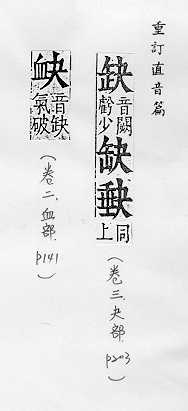 重訂直音篇
缺 音闕 虧少 缺 同上
(卷三、夬部 p203)
音缺 氣破
(卷二、血部 p141)